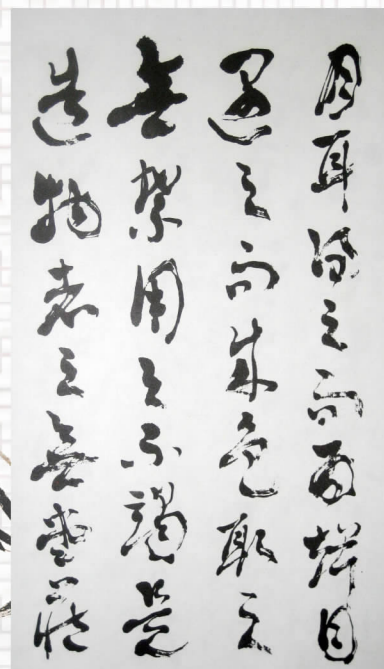 月耳得之而為聲目
遇之而成色取之
無禁用之不竭是
造物者之無盡藏